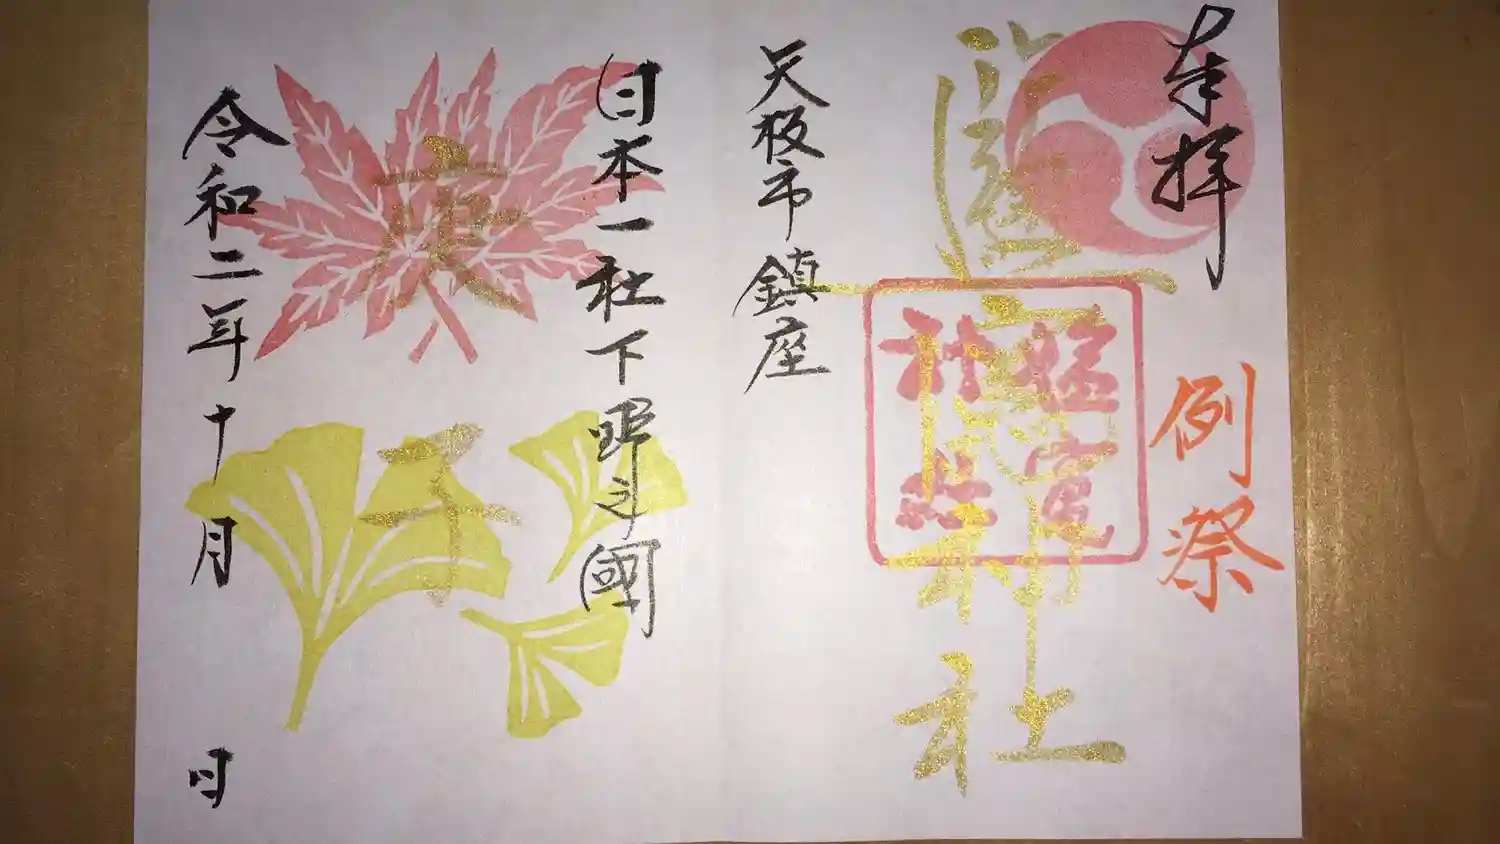 奉拝
例祭
鹽竈神社
矢板市鎮座
日本一社下野之國
庚子
令和二年十月 日